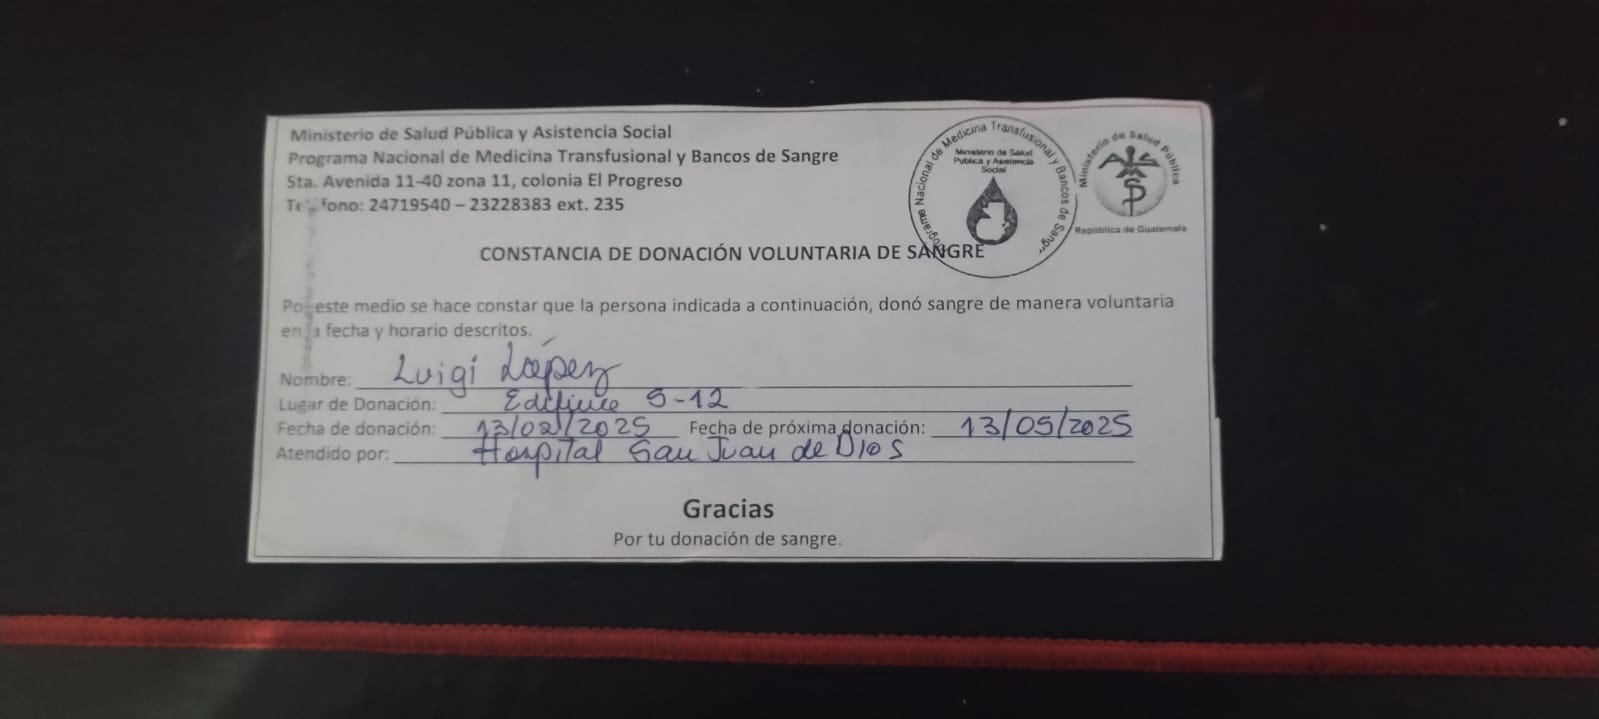 Ministerio de Salud Pública y Asistencia Social
Programa Nacional de Medicina Transfusional y Bancos de Sangre
5ta. Avenida 11-40 zona 11, colonia El Progreso
Teléfono: 24719540 – 23228383 ext. 235
Programa Nacional de Medicina Transfusional y Bancos de Sangre
Ministerio de Salud
Pública y Asistencia
Social
Ministerio de Salud Pública
República de Guatemala
CONSTANCIA DE DONACIÓN VOLUNTARIA DE SANGRE
Por este medio se hace constar que la persona indicada a continuación, donó sangre de manera voluntaria
en la fecha y horario descritos.
Nombre: Luigi López
Lugar de Donación: S-12
Fecha de donación: 13/02/2025 Fecha de próxima donación: 13/05/2025
Atendido por: Hospital San Juan de Dios
Gracias
Por tu donación de sangre.